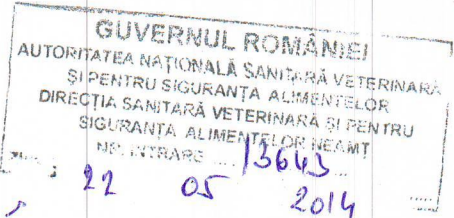 GUVERNUL ROMÂNIEI
AUTORITATEA NAȚIONALĂ SANITARĂ VETERINARĂ
ȘI PENTRU SIGURANȚA ALIMENTELOR
DIRECȚIA SANITARĂ VETERINARĂ ȘI PENTRU
SIGURANȚA ALIMENTELOR NEAMȚ
NR. INTRARE .... 13643
22 05 2014